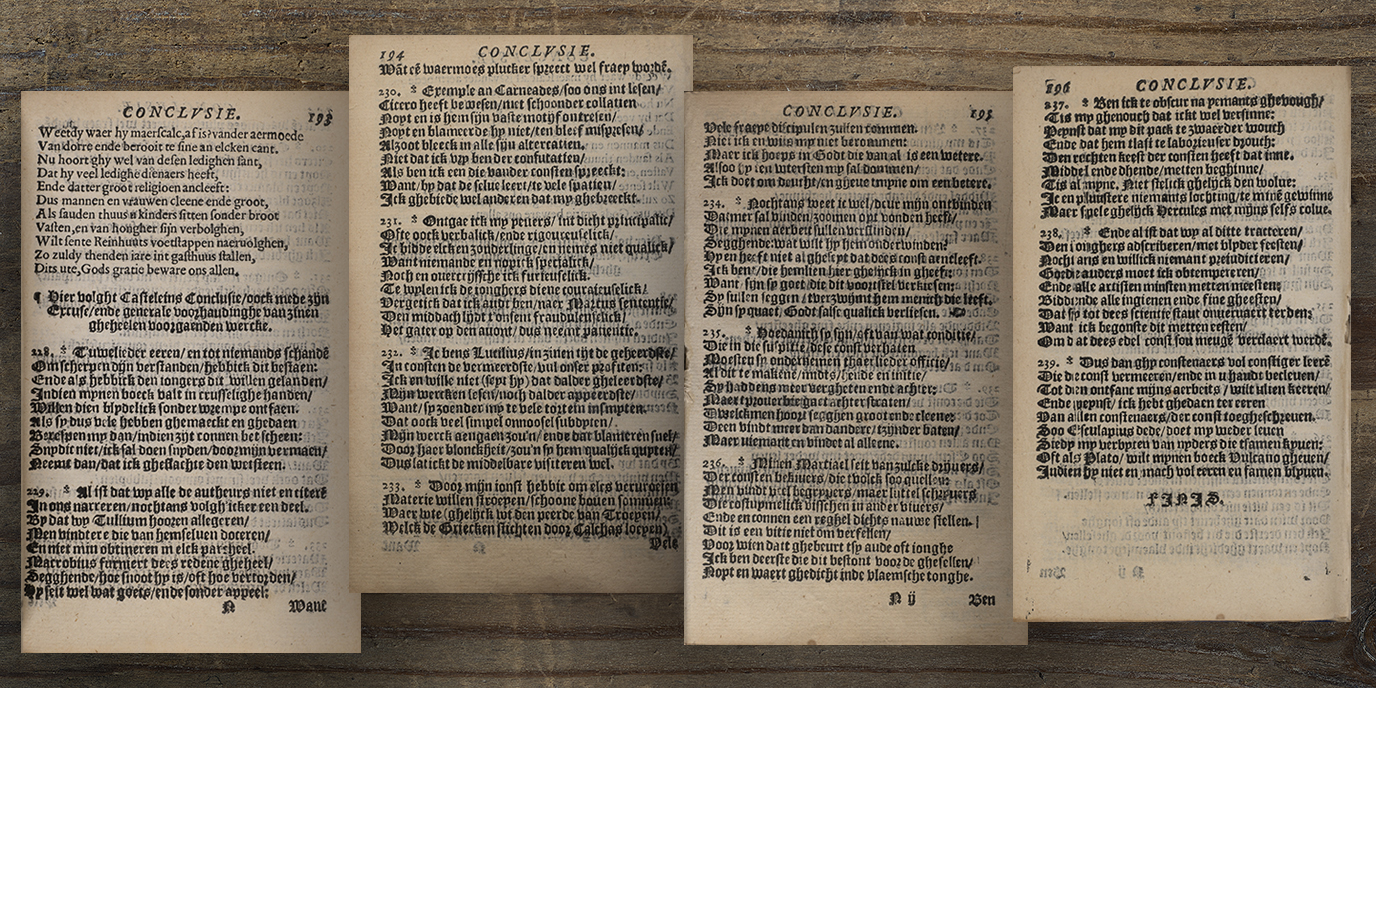 CONCLVSIE. 193
Weetdy waer hy maerscalc, af is? vander aermoede
Van dorre ende berooit te sine an elcken cant.
Nu hoort ghy wel van desen ledighen sant,
Dat hy veel ledighe dienaers heeft,
Ende datter groot religioen ancleeft:
Dus mannen en vrauwen cleene ende groot,
Als sauden thuus s kinders sitten sonder broot
Vasten, en van hongher sijn verbolghen,
Wilt sente Reinhuuts voetstappen naervolghen,
Zo zuldy thenden iare int gasthuus stallen,
Dits ute, Gods gratie beware ons allen.
¶ Hier volght Casteleins Conclusie/oock mede zijn
Excuse/ende generale voorhaudinghe van zinen
gheheelen voorgaenden wercke.
228. Tuwelieder eeren/ en tot niemands schandē
Om scherpen dijn verstanden/hebbick dit bestaen:
Ende als hebbick den iongers dit willen gelanden/
Indien mynen boeck valt in crusselighe handen/
Willen dien blydelick sonder wrempe ontfaen.
Als sy dus vele hebben ghemaeckt en ghedaen
Berespen my dan/indien zijt connen bet scheen:
Snydic niet/ick sal doen snyden/door mijn vermaen/
Neemt dan/dat ick gheslachte den wetsteen.
229. Al ist dat wy alle de autheurs niet en citerē
In ons narreren/nochtans volgh'icker een deel.
By dat wy Tullium hooren allegeren/
Men vindtere die van hemseluen doceren/
En niet min obtineren in elck parcheel.
Macrobius furniert dees redene gheheel/
Segghende/hoe snoot hy is/oft hoe vertorden/
Hy seit wel wat goets/ende sonder appeel:
N Want
194 CONCLVSIE.
Wāt eē waermoes plucker spreect wel fraey wordē.
230. Exemple an Carneades/soo ons int lesen/
Cicero heeft bewesen/niet schoonder collatien
Noyt en is hem sijn vaste motijf ontresen/
Noyt en blameerde hy niet/ten bleef mispresen/
Alzoot bleeck in alle sijn altercatien.
Niet dat ick vry ben der confutatien/
Als ben ick een die vander consten spreeckt:
Want/hy dat de selue leert/te vele spatien/
Ick ghebiede wel anderen dat my ghebreeckt.
231. Ontgaet ick my yeuers/ int dicht principalic/
Ofte oock verbalick/ende rigoureuselick/
Ic bidde elcken zonderlinge/en nemēs niet qualick/
Want niemande en noopick specialick/
Noch en ouercrijssche ick furieuselick.
Te wylen ick de ionghers diene couraieuselick/
Vergetick dat ick audt ben/naer Martus sententie/
Den middach lydt t'onsent fraudulenselick/
Het gater op den auont/dus neemt patientie.
232. Ic bens Lutilius/in zinen tijt de geheerdste/
In consten de vermeerdste/vul onser profiten:
Ick en wille niet (sept hy) dat dalder gheleerdste/
Mijn wercken lesen/noch dalder appeerdste/
Want/sy zoender my te vele tort ein insmyten.
Dat oock veel simpel onnoosel subdyten/
Mijn werck aengaen zou'n/ende dat blameren snel/
Door haer blonckheit/zou'n sy hem qualijck quyten/
Dus latickt de middelbare visiteren wel.
233. Door mijn ionst hebbic om elcs verurocien
Materie willen stroeyen/schoone bouen sommen:
Waer wte (ghelijck wt den peerde van Troeyen/
Welck de Griecken stichten door Calchas loeyen)
Vele
CONCLVSIE. 195
Vele fraeye discipulen zullen commen.
Niet ick en wils my niet berommen:
Maer ick hoeps in Godt die van al is een wetere.
Alsoo sy ten utersten my sal dommen/
Ick doet om deucht/en gheue tmyne om een betere.
234. Nochtans weet ic wel/deur mijn ontbinden
Datmer sal vinden/zoomen opt vonden heeft/
Die mynen aerbeit sullen verslinden/
Segghende: wat wilt hy hem onderwinden?
Hy en heeft niet al ghelept dat dees const ancleeft.
Ick ben/die hemlien hier ghelijck in gheeft:
Want sijn sy goet/die dit voorstel verkiesen:
Sy sullen seggen/tverzwijmt hem menich die leeft.
Sijn sy quaet/Godt salse qualick verliesen.
235. Hoedanich sy sijn/oft van wat conditie/
Die in die suspitie/dese const verhaten
Moesten sy onderhemin thaerlieder officie/
Al dit te makene/mids/t'ende en initie/
Sy haddens meer vergheten ende achter:
Maer tprouerbie gaet achter straten/
Dwelckmen hoort segghen groot ende cleene
Deen vindt meer dan dandere/tzijnder baten/
Maer niemant en vindet al alleene.
236. Minen Martiael seit van zulcke drijuers/
Der consten bekiuers/die tvolck soo quellen:
Men vindt veel begrypers/maer luttel schryuers
Die costupmelick visschen in ander viuers/
Ende en connen een reghel dichts nauwe stellen.
Dit is een vitie niet om verfellen/
Voor wien datt ghebeurt tsy aude oft ionghe
Ick ben deerste die dit bestont voor de ghesellen/
Noyt en waert ghedicht inde vlaemsche tonghe.
N ij Ben
196 CONCLVSIE.
237. Ben ick te obscur na yemants ghevough/
Tis my ghenouch dat ickt wel versinne:
Peynst dat my dit pack te zwaerder wouch
Ende dat hem tlast te laborieuser drouch:
Den rechten keest der consten heeft dat inne.
Middel ende dhende/metten beghinne/
Tis al myne. Niet stelick ghelijck den wolue:
Ic en pluustere niemants lochting/te minē gewinne
Maer spele ghelijck Hercules met mijns selfs colue.
238. Ende al ist dat wy al ditte tracteren/
Den iongers adscriberen/met blyder feesten/
Nocht ans en willick niemant preiudicieren/
Gordie auders moet ick obtempereren/
Ende alle artisten minsten metten meesten:
Biddende alle ingienen ende fine gheesten/
Dat sy tot dees scientie staut onuersaect terden:
Want ick begonste dit metten eesten/
Om dat dees edel const sou meugē verclaert werdē.
239. Dus dan ghy constenaers vol constiger leerē
Die die const vermeeren/ende in u handt beeleuen/
Tot den ontfanc mijns aerbeits/wilt ulien keeren/
Ende peynst/ick hebt ghedaen ter eeren
Van allen constenaers/der const toegheschreuen.
Soo Esculapius dede/doet my weder leuen
Siedy my verbyten van nyders die tsamen knuen:
Oft als Plato/wilt mynen boeck Vulcano gheuen/
Indien hy niet en mach vol eeren en famen blyuen.
FINIS.